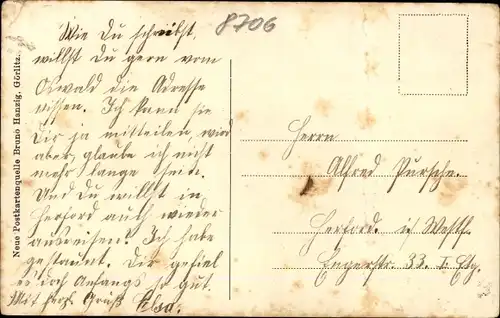 8706
Wie Du schreibst,
willst Du gern vom
Oswald die Adresse
wissen. Ich kann sie
Dir ja mitteilen, wird
aber glaube ich nicht
mehr lange sein.
Und Du willst in
Herford auch wieder
ausreisen? Ich habe
gestaunt. Dir gefiel
es doch Anfangs so gut.
Mit Gruß Elsa.
Neue Postkartenquelle Bruno Hanzig, Görlitz.
Herrn
Alfred Pursche.
Herford. i/ Westf.
Engerstr. 33. I. Etg.